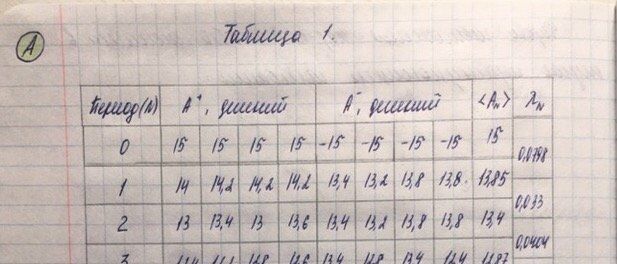 А
Таблица 1.
Период(N) A⁺, делений A⁻, делений <Aₙ> λ_N
0 15 15 15 15 -15 -15 -15 -15 15
0,0798
1 14 14,2 14,2 14,2 13,4 13,2 13,8 13,8 13,85
0,033
2 13 13,4 13 13,6 13,4 13,2 13,8 13,8 13,4
0,0404
3 12,8 12,6 13,4 12,8 13,4 12,4 12,87